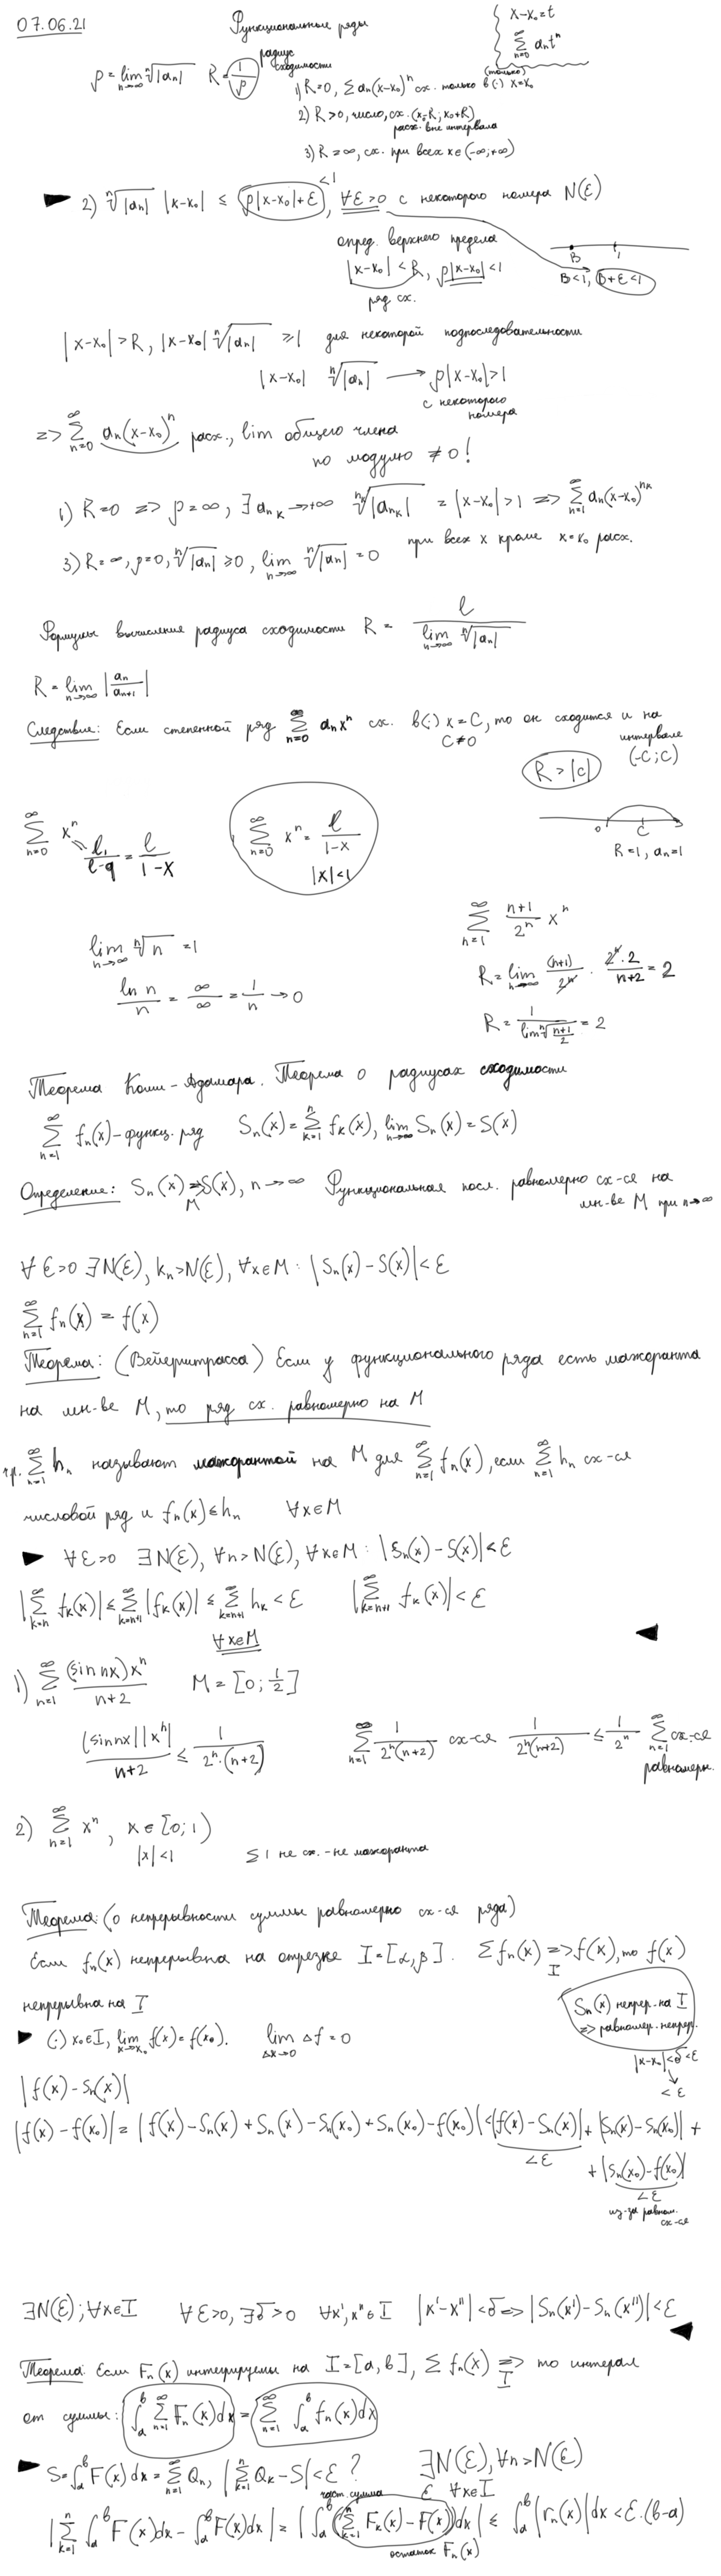 07.06.21
Функциональные ряды
x-x₀=t
∑_{n=0}^∞ aₙtⁿ
ρ = lim_{n→∞} ⁿ√|aₙ| R = 1/ρ радиус сходимости
1) R=0, ∑aₙ(x-x₀)ⁿ сх. только в (·) x=x₀
(только)
2) R>0, число, сх. (x₀-R; x₀+R)
расх. вне интервала
3) R=∞, сх. при всех x∈(-∞;+∞)
2) ⁿ√|aₙ| |x-x₀| ≤ ρ|x-x₀|+ε <1, ∀ε>0 с некоторого номера N(ε)
опред. верхнего предела
|x-x₀|<R, ρ|x-x₀|<1
ряд сх.
B 1
B<1, B+ε<1
|x-x₀|>R, |x-x₀| ⁿ√|aₙ| ≥1 для некоторой подпоследовательности
|x-x₀| ⁿ√|aₙ| → ρ|x-x₀|>1
с некоторого номера
=> ∑_{n=0}^∞ aₙ(x-x₀)ⁿ расх., lim общего члена
по модулю ≠0!
1) R=0 => ρ=∞, ∃ a_{n_k}→+∞ ^{n_k}√|a_{n_k}| = |x-x₀|>1 => ∑_{n=1}^∞ aₙ(x-x₀)^{n_k}
при всех x кроме x=x₀ расх.
3) R=∞, ρ=0, ⁿ√|aₙ| ≥0, lim_{n→∞} ⁿ√|aₙ| =0
Формулы вычисление радиуса сходимости R = 1/(lim_{n→∞} ⁿ√|aₙ|)
R = lim_{n→∞} |aₙ/aₙ₊₁|
Следствие: Если степенной ряд ∑_{n=0}^∞ aₙxⁿ сх. в (·) x=C, то он сходится и на
C≠0 интервале
R>|c| (-C;C)
∑_{n=0}^∞ xⁿ = b₁/(1-q) = 1/(1-x)
∑_{n=0}^∞ xⁿ = 1/(1-x)
|x|<1
0 C
R=1, aₙ=1
∑_{n=1}^∞ (n+1)/2ⁿ xⁿ
lim_{n→∞} ⁿ√n =1
R = lim_{n→∞} (n+1)/2ⁿ · (2ⁿ·2)/(n+2) = 2
ln n/n = ∞/∞ = 1/n → 0
R = 1/(lim ⁿ√((n+1)/2)) = 2
Теорема Коши-Адамара. Теорема о радиусах сходимости
∑_{n=1}^∞ fₙ(x) - функц. ряд Sₙ(x)=∑_{k=1}^n f_k(x), lim_{n→∞} Sₙ(x)=S(x)
Определение: Sₙ(x) ⇒_M S(x), n→∞ Функциональная посл. равномерно сх-ся на
мн-ве M при n→∞
∀ε>0 ∃N(ε), kₙ>N(ε), ∀x∈M: |Sₙ(x)-S(x)|<ε
∑_{n=1}^∞ fₙ(x) = f(x)
Теорема: (Вейерштрасса) Если у функционального ряда есть мажоранта
на мн-ве M, то ряд сх. равномерно на M
∑_{n=1}^∞ hₙ называют мажорантой на M для ∑_{n=1}^∞ fₙ(x), если ∑_{n=1}^∞ hₙ сх-ся
числовой ряд и fₙ(x)≤hₙ ∀x∈M
∀ε>0 ∃N(ε), ∀n>N(ε), ∀x∈M: |Sₙ(x)-S(x)|<ε
|∑_{k=n}^∞ f_k(x)| ≤ ∑_{k=n+1}^∞ |f_k(x)| ≤ ∑_{k=n+1}^∞ h_k < ε |∑_{k=n+1}^∞ f_k(x)|<ε
∀x∈M
1) ∑_{n=1}^∞ (sin nx)xⁿ/(n+2) M=[0; 1/2]
|sin nx||xⁿ|/(n+2) ≤ 1/(2ⁿ·(n+2)) ∑_{n=1}^∞ 1/(2ⁿ(n+2)) сх-ся 1/(2ⁿ(n+2)) ≤ 1/2ⁿ ∑_{n=1}^∞ сх-ся
равномерн.
2) ∑_{n=1}^∞ xⁿ, x∈[0;1)
|x|<1 ∑1 не сх. - не мажоранта
Теорема: (о непрерывности суммы равномерно сх-ся ряда)
Если fₙ(x) непрерывна на отрезке I=[α,β]. ∑fₙ(x) ⇒_I f(x), то f(x)
непрерывна на I
Sₙ(x) непрер. на I
=> равномер. непрер.
(·) x₀∈I, lim_{x→x₀} f(x)=f(x₀). lim_{Δx→0} Δf=0
|x-x₀|<δ<ε
<ε
|f(x)-Sₙ(x)|
|f(x)-f(x₀)| = |f(x)-Sₙ(x)+Sₙ(x)-Sₙ(x₀)+Sₙ(x₀)-f(x₀)| < |f(x)-Sₙ(x)| + |Sₙ(x)-Sₙ(x₀)| +
<ε
+ |Sₙ(x₀)-f(x₀)|
<ε
из-за равном.
сх-ся
∃N(ε); ∀x∈I ∀ε>0, ∃δ>0 ∀x',x''∈I |x'-x''|<δ => |Sₙ(x')-Sₙ(x'')|<ε
Теорема: Если Fₙ(x) интегрируемы на I=[a,b], ∑fₙ(x) ⇒_I то интеграл
от суммы: ∫_a^b ∑_{n=1}^∞ Fₙ(x)dx = ∑_{n=1}^∞ ∫_a^b fₙ(x)dx
S=∫_a^b F(x)dx = ∑_{n=1}^∞ Qₙ, |∑_{k=1}^n Q_k-S|<ε? ∃N(ε), ∀n>N(ε)
част. сумма ε ∀x∈I
|∑_{k=1}^n ∫_a^b F(x)dx - ∫_a^b F(x)dx| = |∫_a^b (∑_{k=1}^n F_k(x)-F(x))dx| ≤ ∫_a^b |rₙ(x)|dx < ε·(b-a)
остаток Fₙ(x)